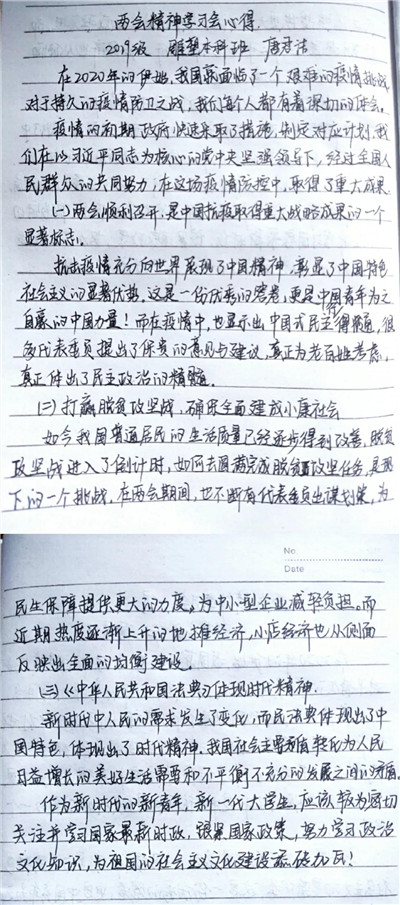 两会精神学习会心得.
2019级 雕塑本科班 唐君洁
在2020年的伊始,我国就面临了一个艰难的疫情挑战
对于持久的疫情防卫之战,我们每个人都有着深切的体会。
疫情的初期政府快速采取了措施,制定对应计划,我
们在以习近平同志为核心的党中央坚强领导下,经过全国人
民群众的共同努力,在这场疫情防控中,取得了重大成果
(一)两会顺利召开,是中国抗疫取得重大战略成果的一个
显著标志。
抗击疫情充分向世界展现了中国精神,彰显了中国特色
社会主义的显著优势,这是一份优秀的答卷,更是中国青年为之
自豪的中国力量!而在疫情中,也显示出中国式民主行得通,很
多代表委员提出了保贵的意见与建议,真正为老百姓考虑,
真正体出了民主政治的精髓.
(二)打赢脱贫攻坚战,确保全面建成小康社会
如今我国普通居民的生活质量已经逐步得到改善,脱贫
攻坚战进入了倒计时,如何去圆满完成脱贫攻坚任务,是现
下的一个挑战.在两会期间,也不断有代表委员出谋划策,为
No.
Date
民生保障提供更大的力度,为中小型企业减轻负担。而
近期热度逐渐上升的地摊经济,小店经济也从侧面
反映出全面的均衡建设.
(三)《中华人民共和国法典》体现时代精神.
新时代中人民的需求发生了变化,而民法典体现出了中
国特色,体现出了时代精神.我国社会主要矛盾转化为人民
日益增长的美好生活需要和不平衡不充分的发展之间的矛盾.
作为新时代的新青年,新一代大学生,应该较为密切
关注并学习国家最新时政,跟紧国家政策,努力学习政治
文化知识,为祖国的社会主义文化建设添砖加瓦!